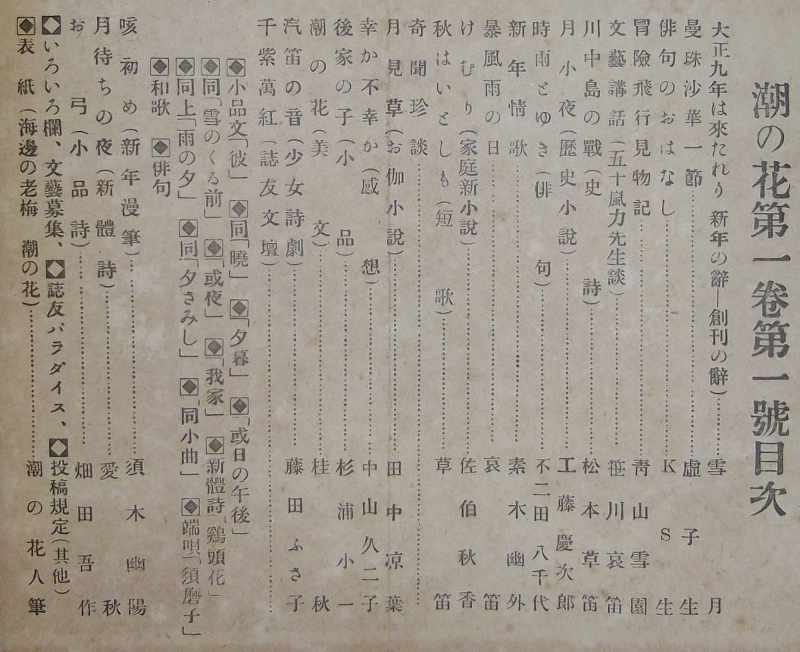 潮の花第一卷第一號目次
大正九年は來たれり 新年の辭―創刊の辭)……雪月
曼珠沙華一節……虛子生
俳句のおはなし……KS生
冒險飛行見物記……靑山雪園
文藝講話(五十嵐力先生談)……笹川哀笛
川中島の戰(史詩)……松本草笛
月小夜(歷史小說)……工藤慶次郎
時雨とゆき(俳句)……不二田八千代
新年情歌……素木幽外
暴風雨の日……哀笛
けむり(家庭新小說)……佐伯秋香
秋はいとしも(短歌)……草笛
奇聞珍談……
月見草(お伽小說)……田中凉葉
幸か不幸か(感想)……中山久二子
後家の子(小品)……杉浦小一
潮の花(美文)……桂秋
汽笛の音(少女詩劇)……藤田ふさ子
千紫萬紅(誌友文壇)……
◆小品文「彼」◆同「曉」◆「夕暮」◆「或日の午後」
◆同「雪のくる前」◆「或夜」◆「我家」◆新體詩「鷄頭花」
◆同上「雨の夕」◆同「夕さみし」◆「同小曲」◆端唄「須磨子」
◆和歌 ◆俳句
咳初め(新年漫筆)……須木幽陽
月待ちの夜(新體詩)……愛秋
お弓(小品詩)……畑田吾作
◆いろいろ欄、文藝募集、◆誌友パラダイス、◆投稿規定(其他)
◆表紙(海邊の老梅 潮の花)……潮の花人筆